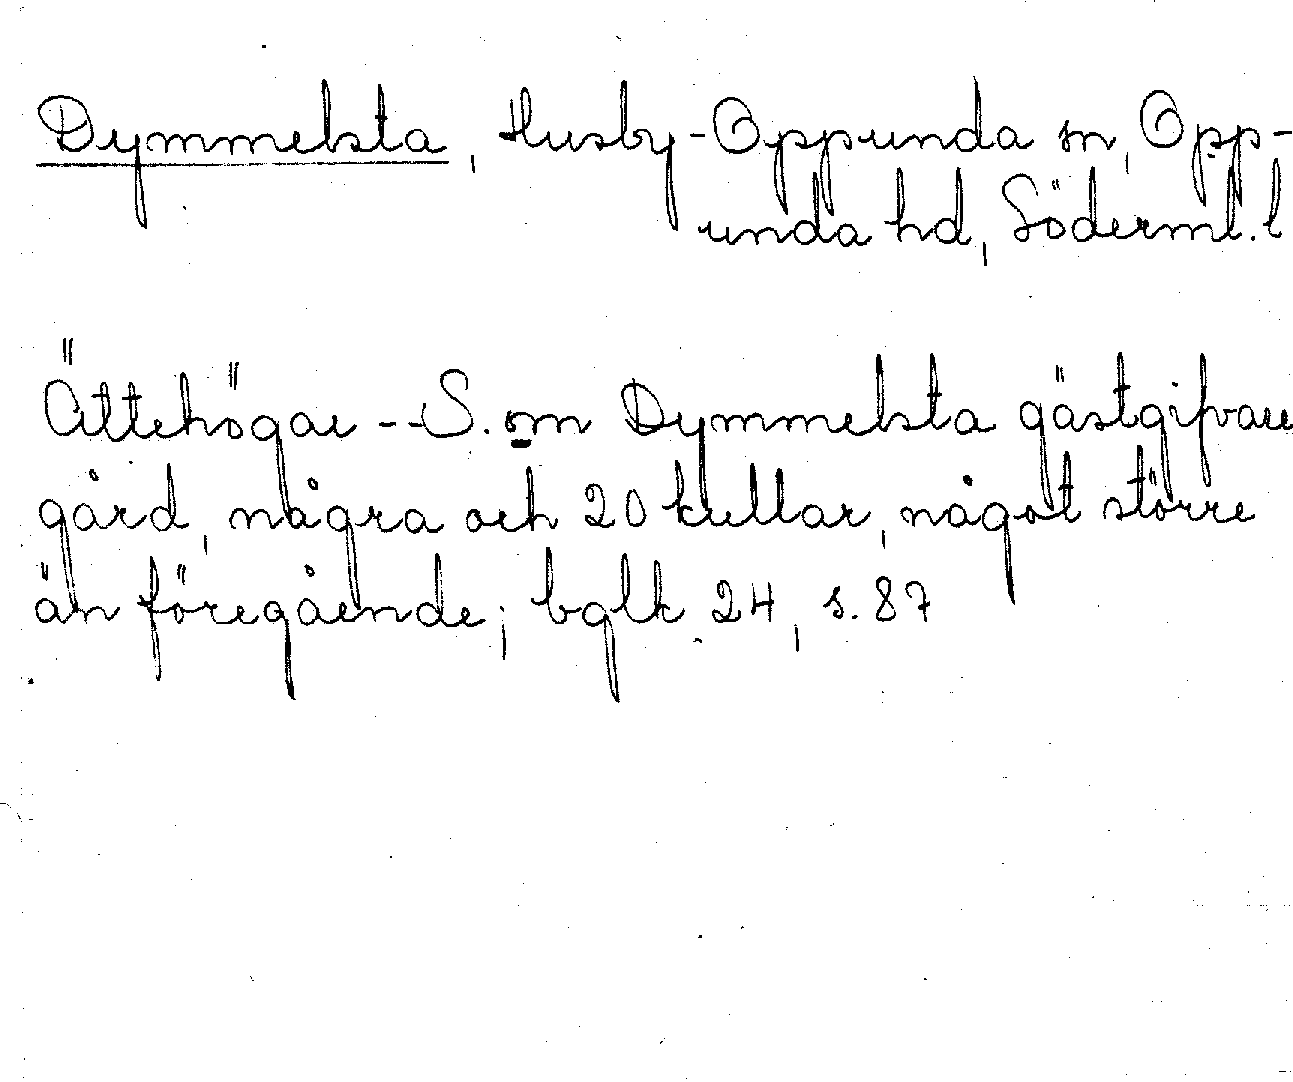 Dymmelsta, Husby-Oppunda sn, Opp-
unda hd, Söderml. l
Ättehögar -- S. om Dymmelsta gästgifvare
gård, några och 20 kullar, något större
än föregående; bglk 24, s. 87